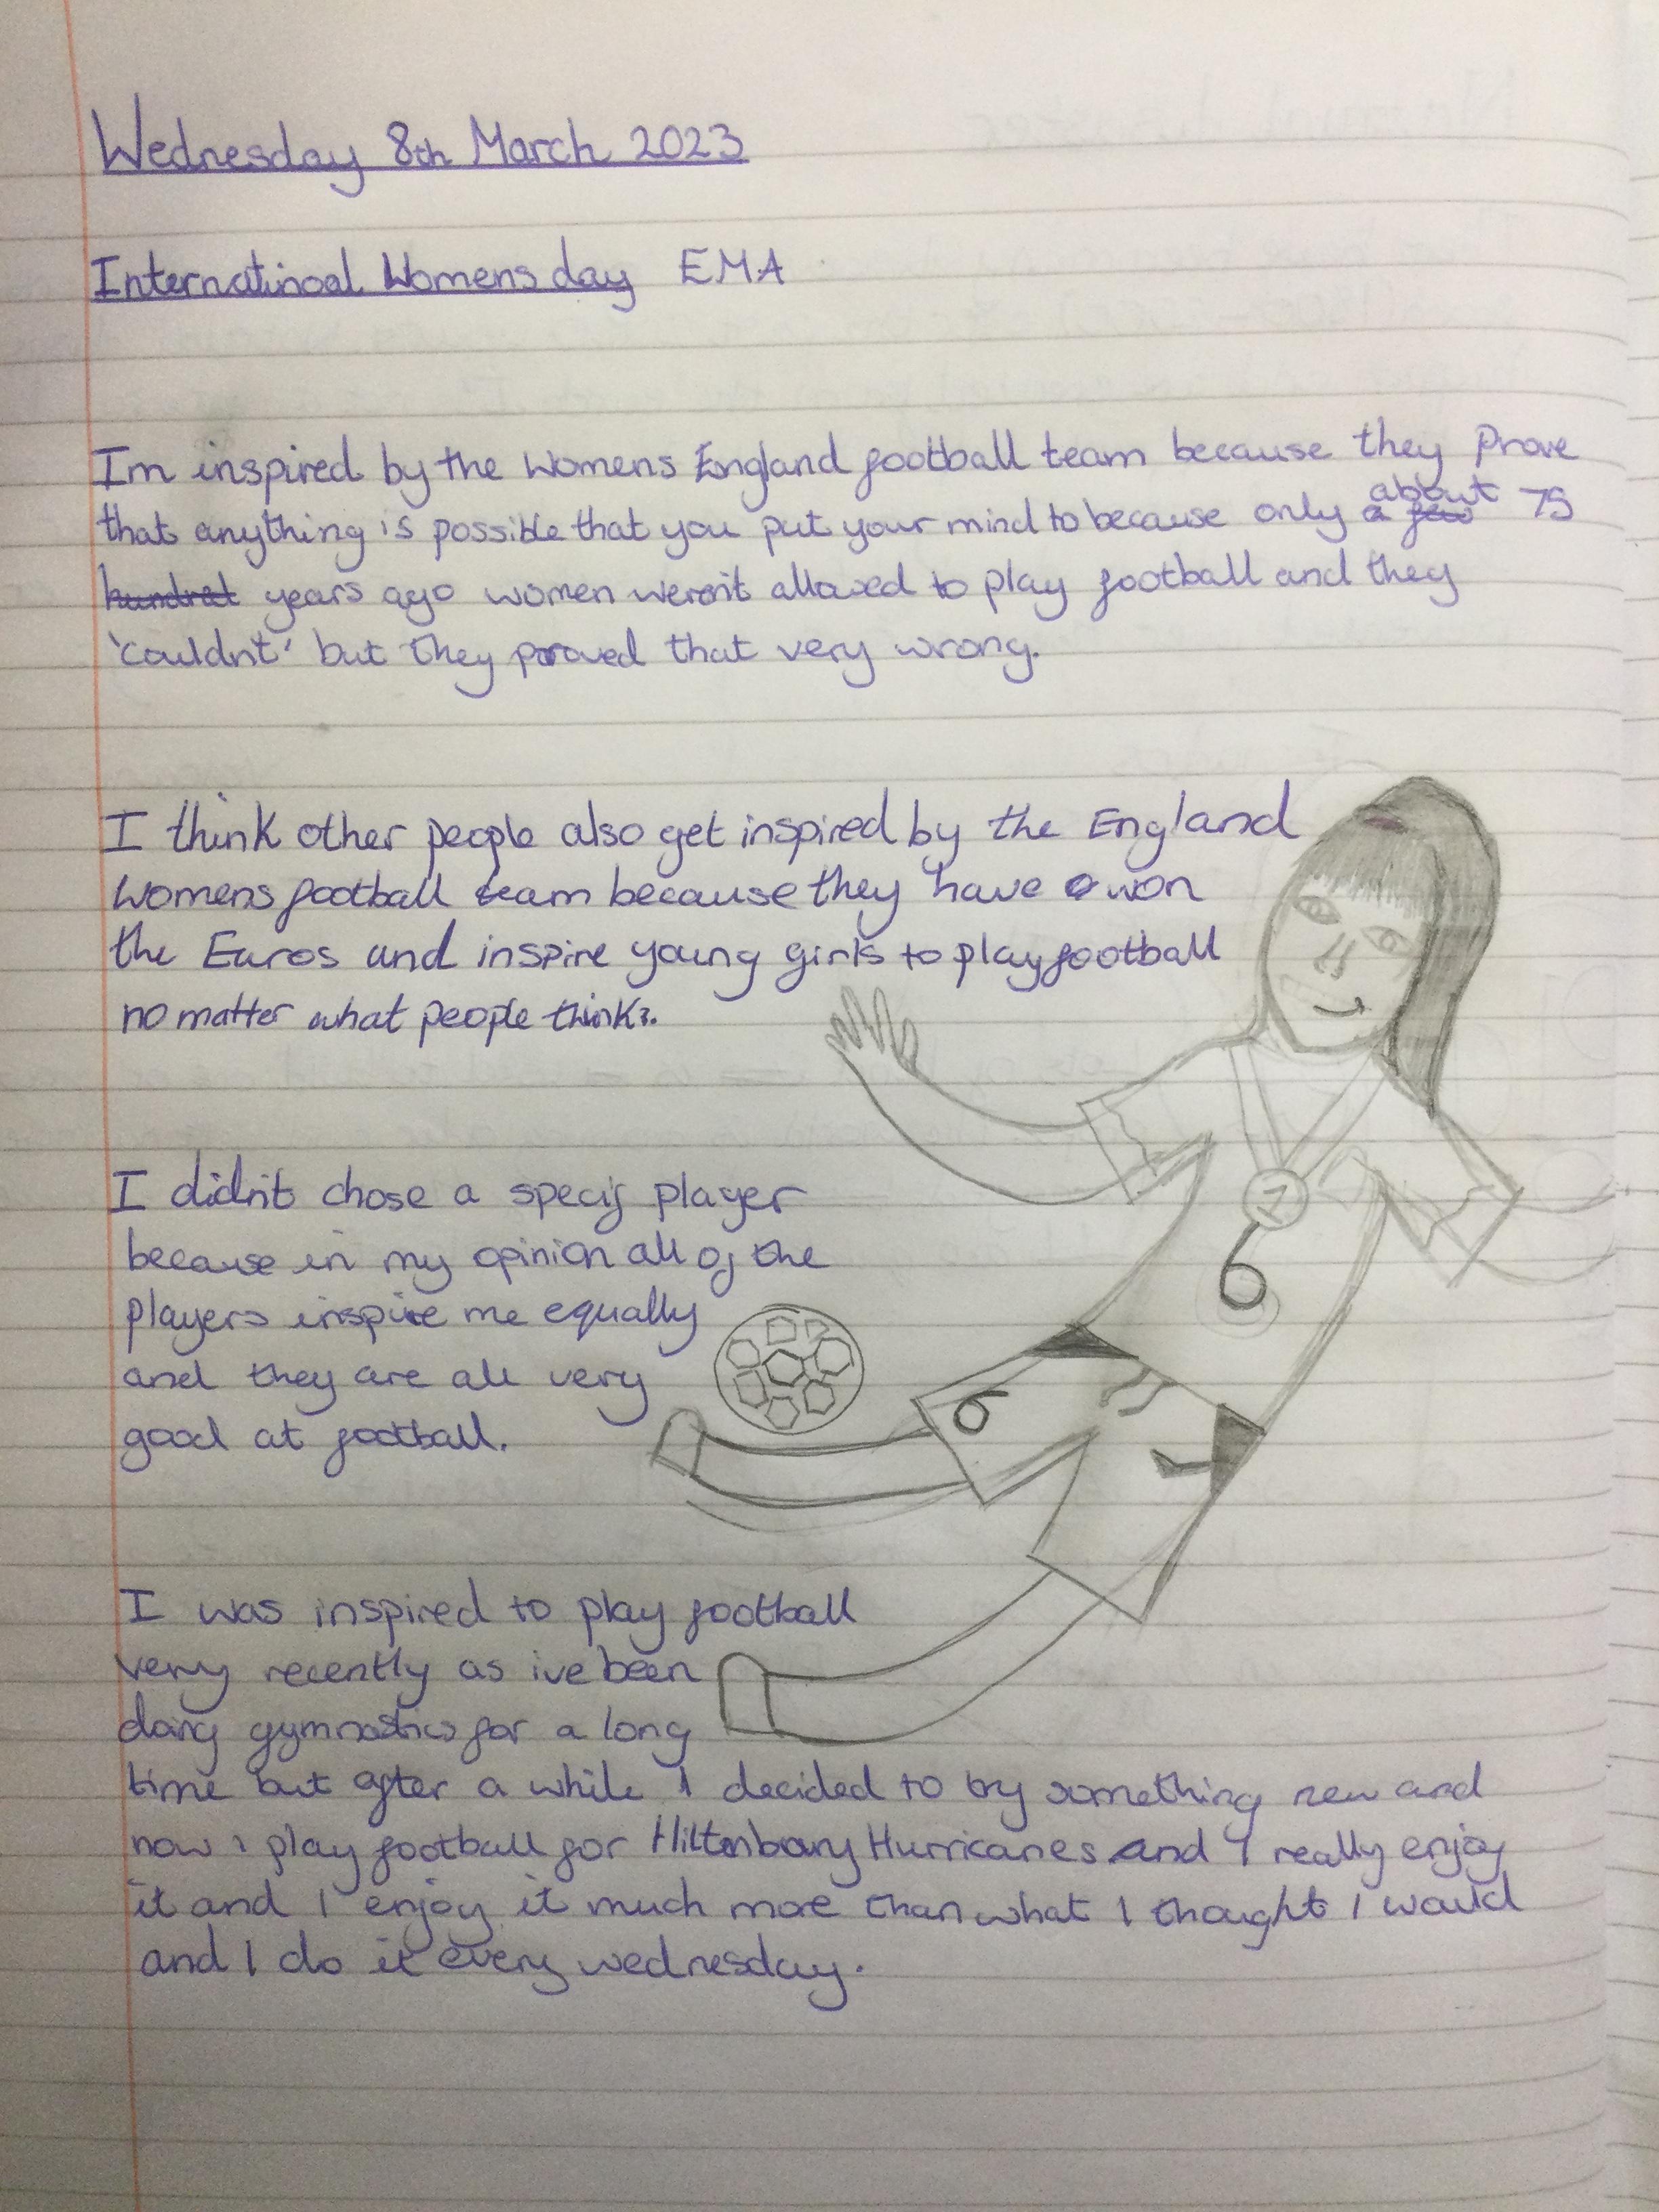 Wednesday 8th March 2023
Internatinoal Womens day EMA
Im inspired by the Womens England football team because they Prove
that anything is possible that you put your mind to because only a few about 75
hundred years ago women weren't allowed to play football and they
'couldn't' but they proved that very wrong.
I think other people also get inspired by the England
Womens football team because they have won
the Euros and inspire young girls to play football
no matter what people think.
I didn't chose a specif player
because in my opinion all of the
players inspire me equally
and they are all very
good at football.
I was inspired to play football
very recently as ive been
doing gymnastics for a long
time but after a while I decided to try something new and
now i play football for Hiltenbory Hurricanes and I really enjoy
it and I enjoy it much more than what I thought I would
and I do it every wednesday.
1
6
6